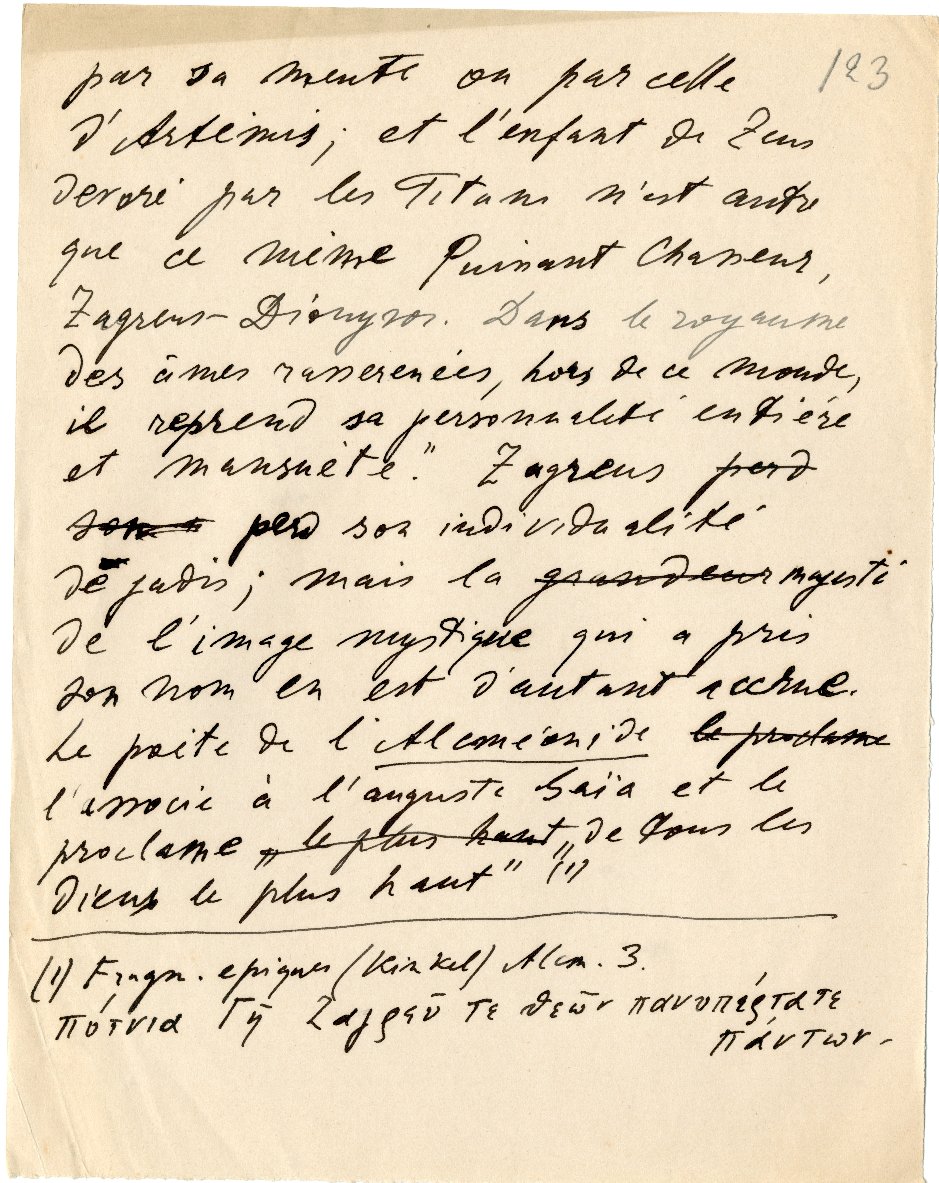 123
par sa meute ou par celle
d'Artémis; et l'enfant de Zeus
devoré par les Titans n'est autre
que ce même Puissant Chasseur,
Zagreus-Dionysos. Dans le royaume
des âmes rasserenées, hors de ce monde,
il reprend sa personnalité entière
et mansuète." Zagreus perd
son perd son individualité
de jadis; mais la grandeur majesté
de l'image mystique qui a pris
son nom en est d'autant accrue.
Le poète de l'Alcméonide le proclame
l'associe à l'auguste Gaïa et le
proclame „le plus haut" „de tous les
dieux le plus haut" (1)
(1) Fragm. epiques (Kinkel) Alcm. 3.
πότνια Γῆ Ζαγρεῦ τε θεῶν πανυπέρτατε
πάντων.